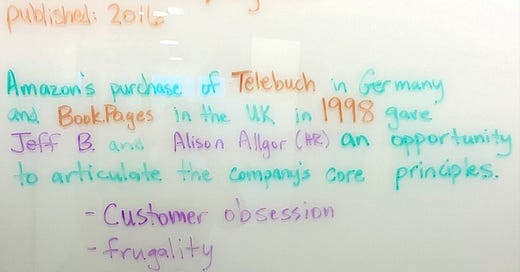 published: 2016
Amazon's purchase of Telebuch in Germany
and BookPages in the UK in 1998 gave
Jeff B. and Alison Allgor (HR) an opportunity
to articulate the company's core principles.
- Customer obsession
- frugality